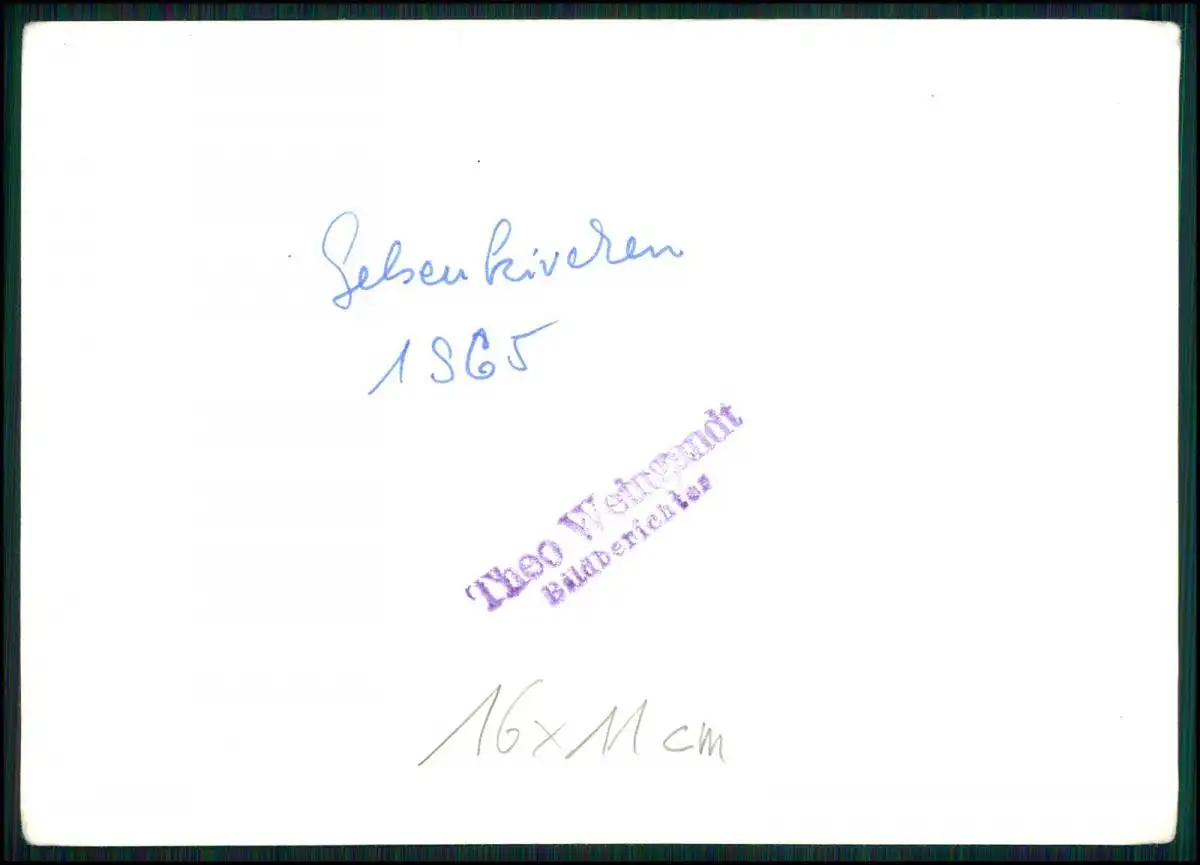 Gelsenkirchen
1965
Theo Weingandt
Bildberichter
16 x 11 cm